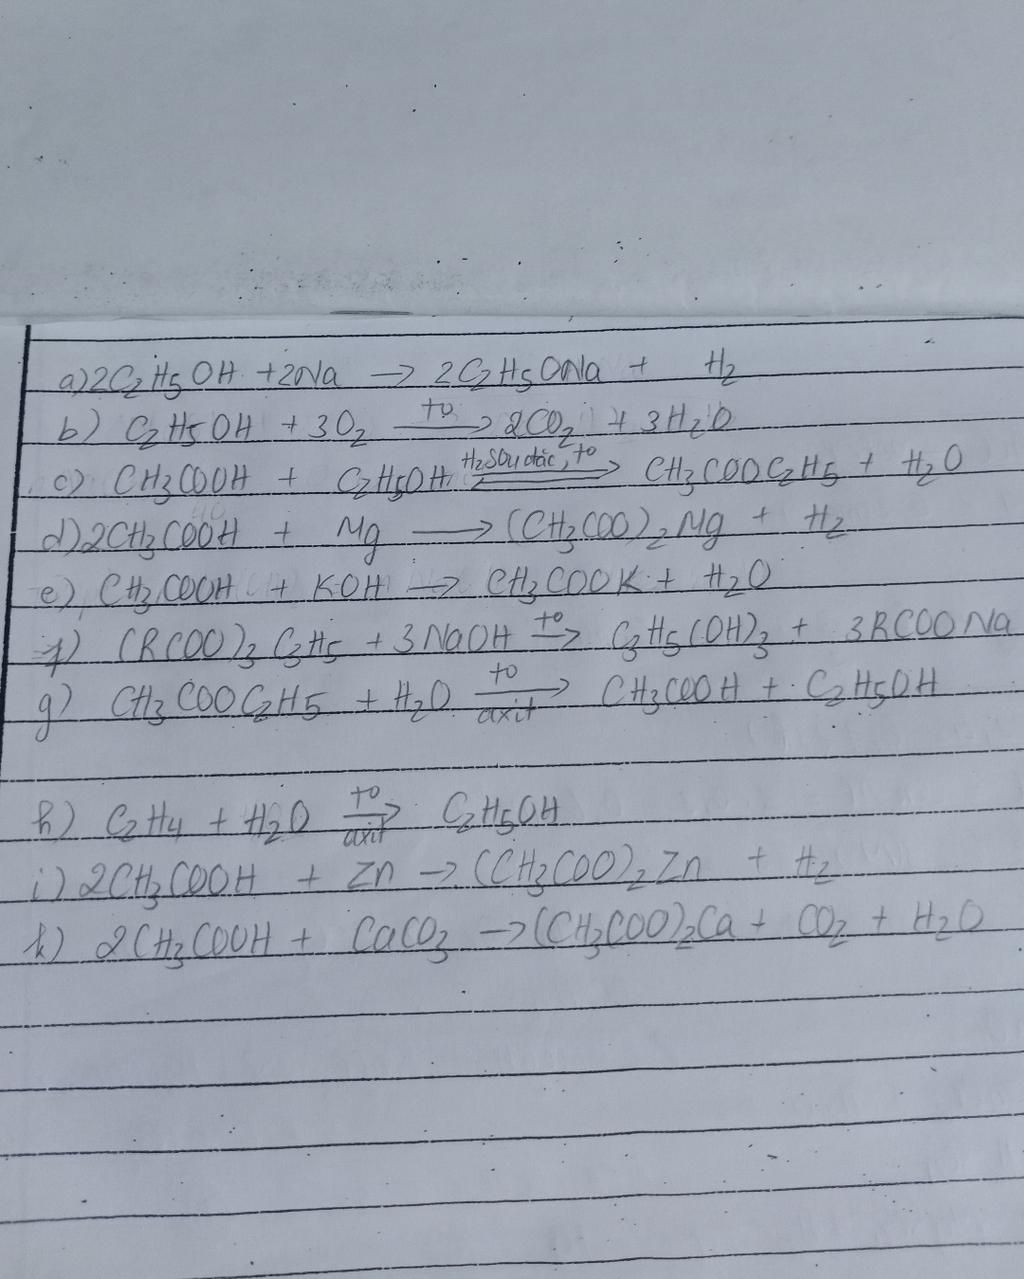 a) 2C₂H₅OH + 2Na → 2C₂H₅ONa + H₂
b) C₂H₅OH + 3O₂ –tº→ 2CO₂ + 3H₂O
c) CH₃COOH + C₂H₅OH ⇌ (H₂SO₄ đặc, tº) CH₃COOC₂H₅ + H₂O
d) 2CH₃COOH + Mg → (CH₃COO)₂Mg + H₂
e) CH₃COOH + KOH → CH₃COOK + H₂O
f) (RCOO)₃C₃H₅ + 3NaOH –tº→ C₃H₅(OH)₃ + 3RCOONa
g) CH₃COOC₂H₅ + H₂O –tº, axit→ CH₃COOH + C₂H₅OH
h) C₂H₄ + H₂O –tº, axit→ C₂H₅OH
i) 2CH₃COOH + Zn → (CH₃COO)₂Zn + H₂
k) 2CH₃COOH + CaCO₃ → (CH₃COO)₂Ca + CO₂ + H₂O